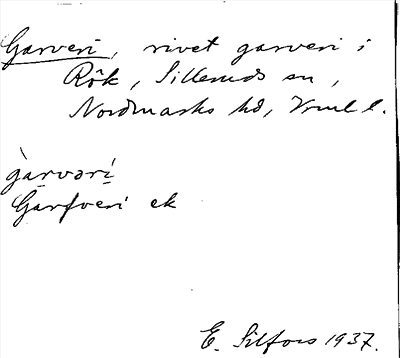 Garveri, rivet garveri i
Rök, Silleruds sn,
Nordmarks hd, Vrml l.
gàrvərí
Garfveri ek
E. Silfors 1937.